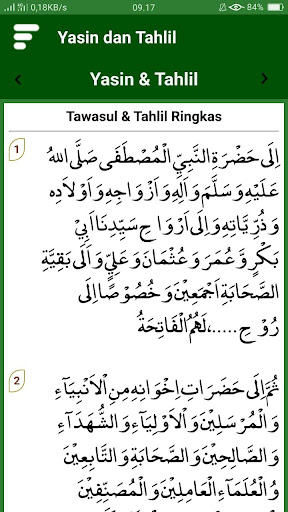 0,18KB/s 09.17 84%
Yasin dan Tahlil
Yasin & Tahlil
Tawasul & Tahlil Ringkas
1
اِلَى حَضْرَةِ النَّبِيِّ الْمُصْطَفَى صَلَّى اللهُ
عَلَيْهِ وَسَلَّمَ وَآلِهِ وَاَزْوَاجِهِ وَاَوْلَادِهِ
وَذُرِّيَّاتِهِ وَاِلَى اَرْوَاحِ سَيِّدِنَا اَبِيْ
بَكْرٍ وَّعُمَرَ وَعُثْمَانَ وَعَلِيٍّ وَاِلَى بَقِيَّةِ
الصَّحَابَةِ اَجْمَعِيْنَ وَخُصُوْصًا اِلَى
رُوْحِ.....، لَهُمُ الْفَاتِحَةُ
2
ثُمَّ اِلَى حَضَرَاتِ اِخْوَانِهِ مِنَ الْاَنْبِيَآءِ
وَالْمُرْسَلِيْنَ وَالْاَوْلِيَآءِ وَالشُّهَدَآءِ
وَالصَّالِحِيْنَ وَالصَّحَابَةِ وَالتَّابِعِيْنَ
وَالْعُلَمَآءِ الْعَامِلِيْنَ وَالْمُصَنِّفِيْنَ